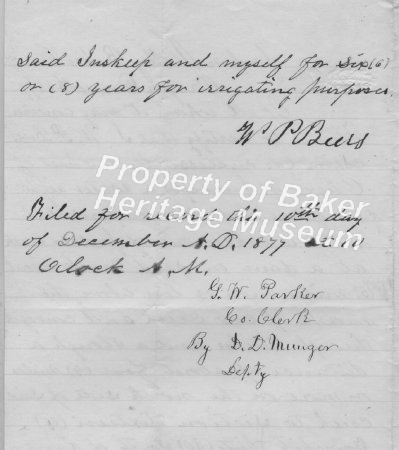 Said Inskeep and myself for Six (6)
or (8) years for irrigating purposes.
Wm P Beers
Property of Baker
Heritage Museum
Filed for record this 10th day
of December A.D. 1877 at
Oclock A.M.
G. W. Parker
Co. Clerk
By D. D. Munger
Depty